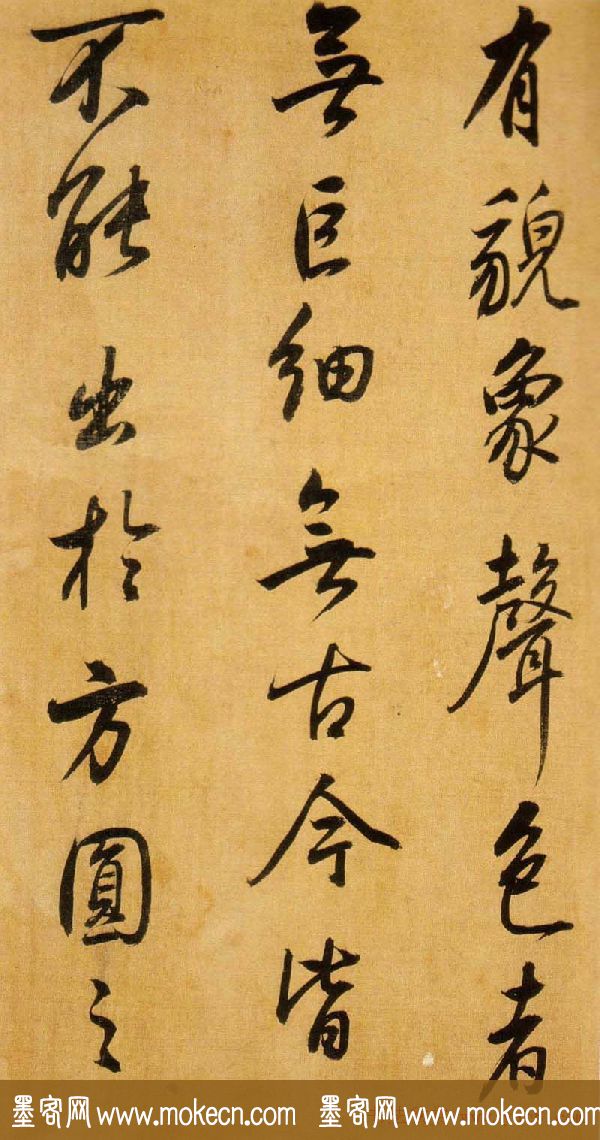 有貌象聲色者
無巨細無古今皆
不能出於方圓之
墨客网 www.mokecn.com 墨客网 www.mokecn.com